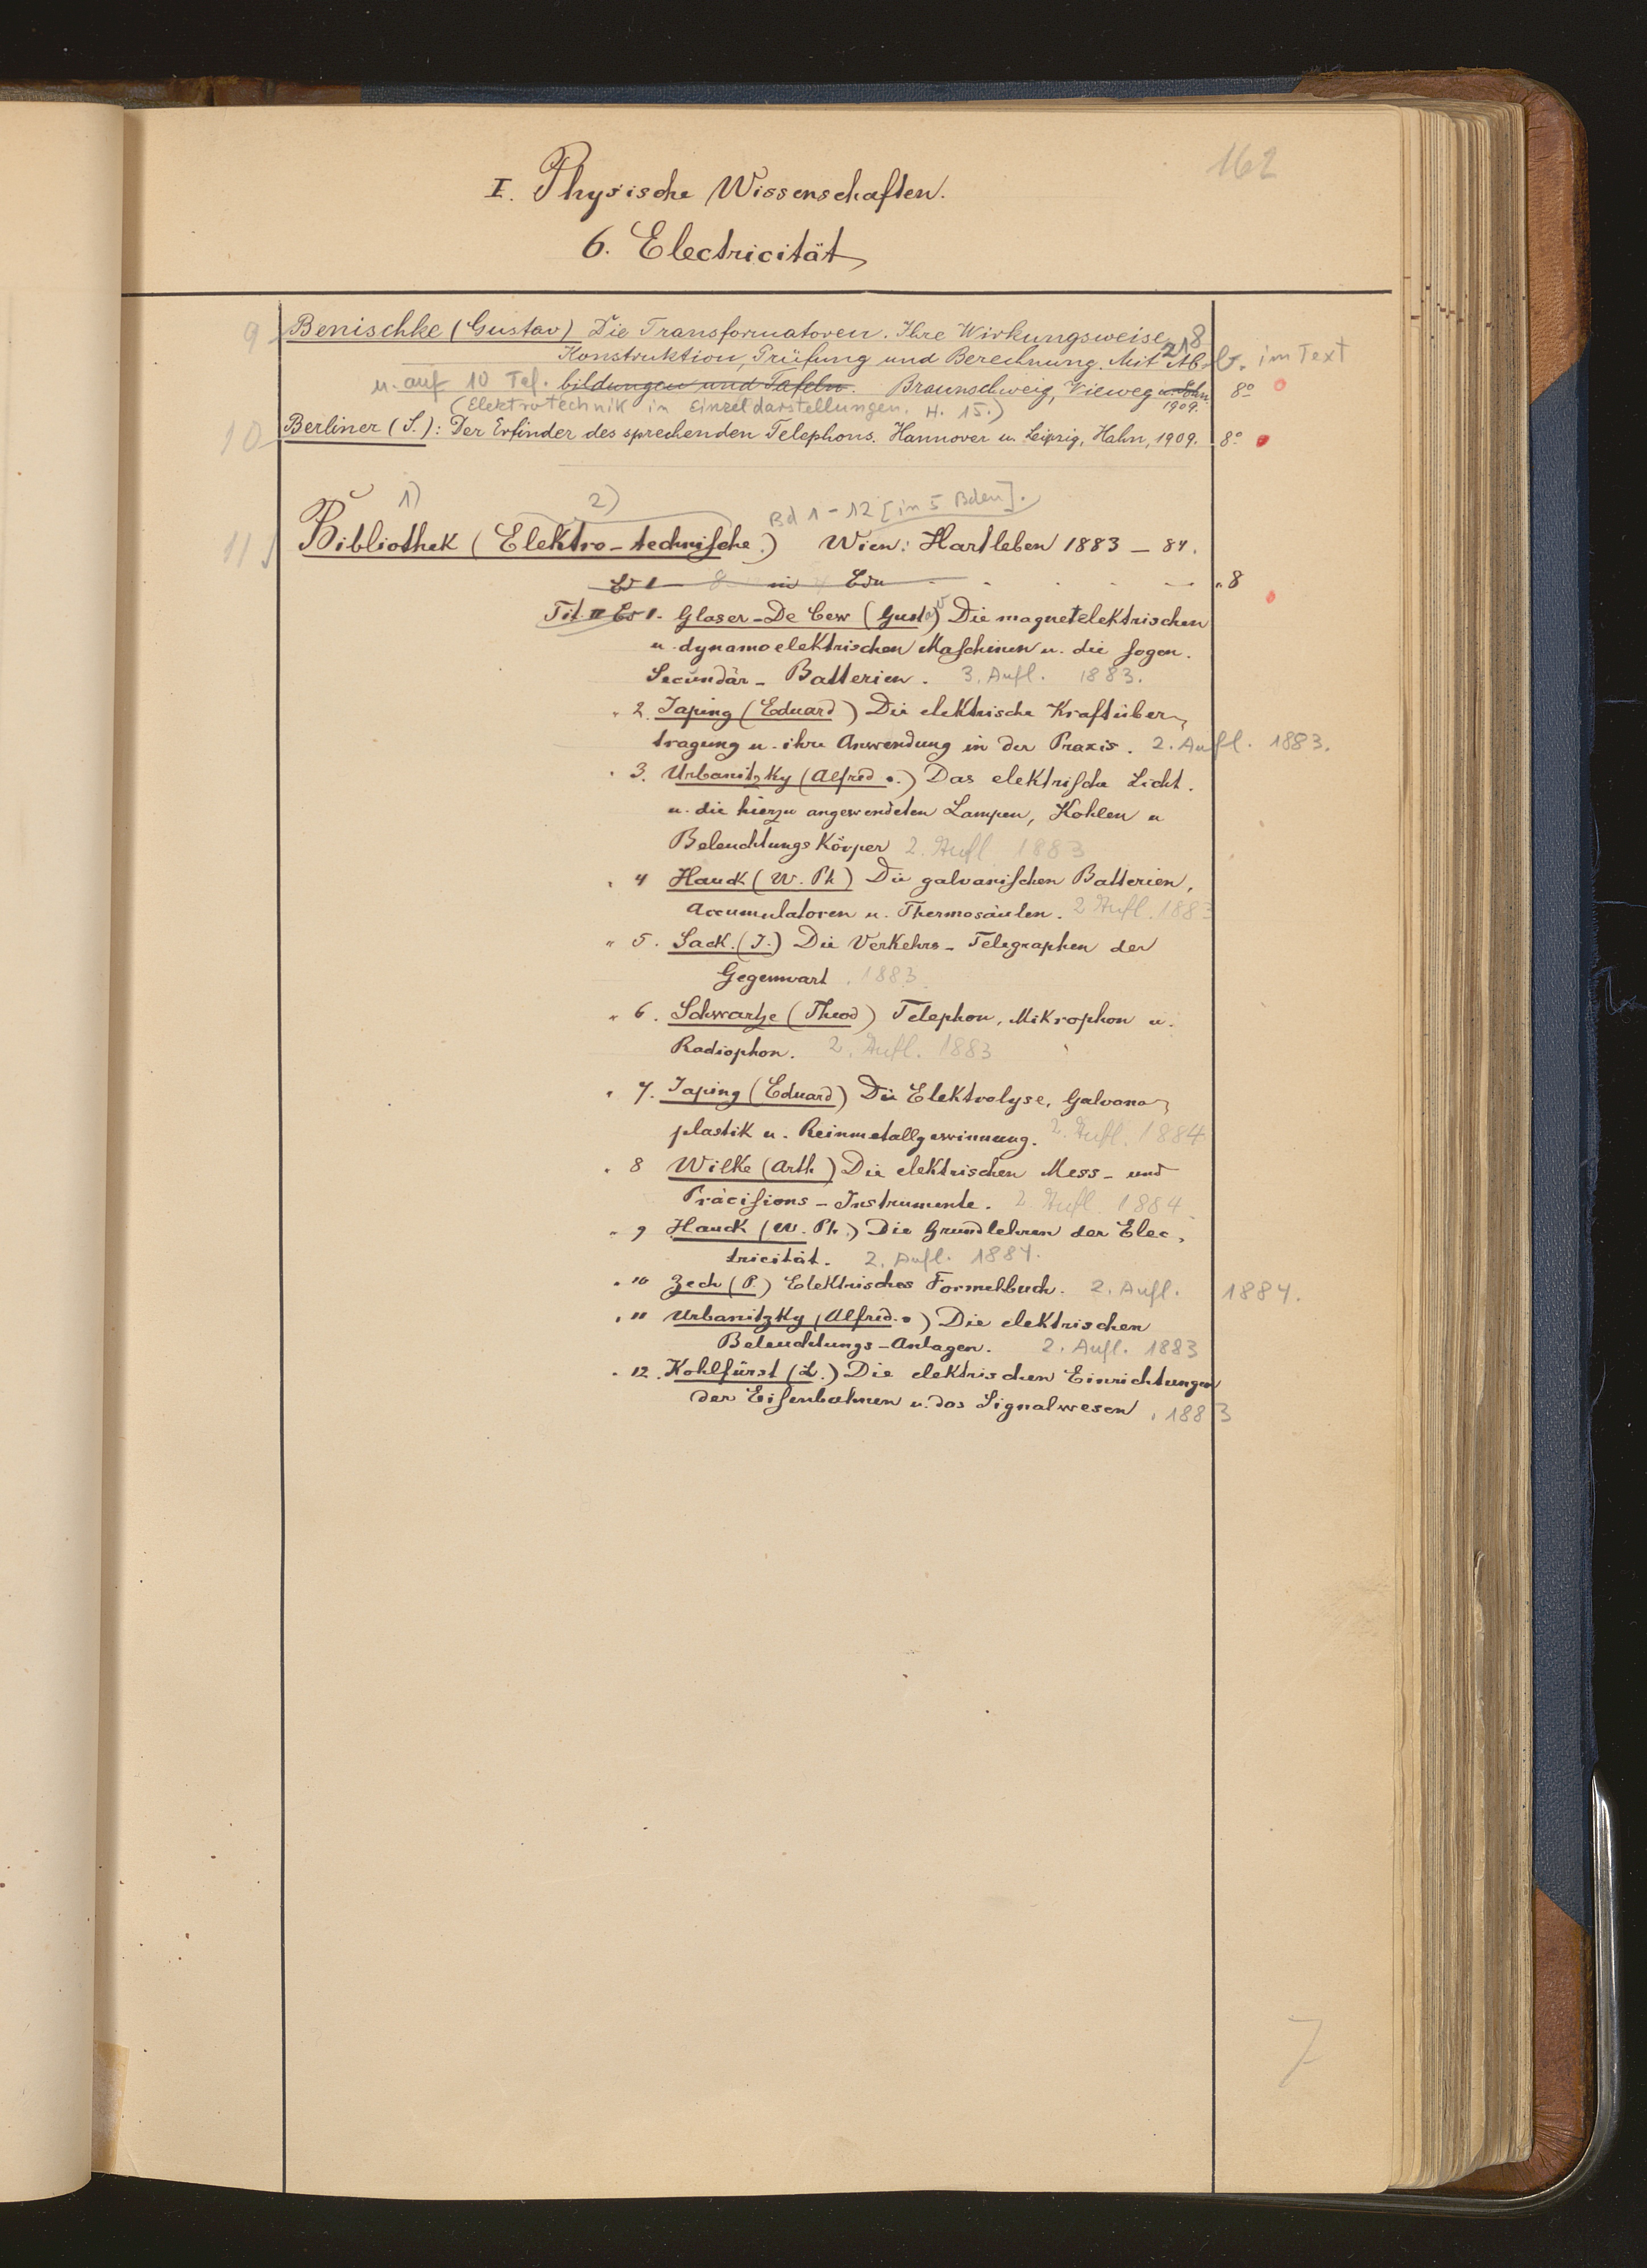 162
I. Physische Wissenschaften.
6. Electricität
9 Benischke (Gustav) Die Transformatoren. Ihre Wirkungsweise,
Konstruktion, Prüfung und Berechnung. Mit 218 Abb. im Text
u. auf 10 Tef. bildungen und Tafeln. Braunschweig, Vieweg u. Sohn. 8°
(Elektrotechnik in Einzeldarstellungen. H. 15.) 1909.
10 Berliner (S.): Der Erfinder des sprechenden Telephons. Hannover u. Leipzig, Hahn, 1909. 8°
1) 2) Bd 1-12 [in 5 Bden].
11 Bibliothek (Elektro-technische.) Wien: Hartleben 1883 – 84.
8
Tit. II Bd 1. Glaser-De Cew (Gustav) Die magnetelektrischen
u. dynamoelektrischen Maschinen u. die sogen.
Secundär-Batterien. 3. Aufl. 1883.
" 2. Japing (Eduard) Die elektrische Kraftüber-
tragung u. ihre Anwendung in der Praxis. 2. Aufl. 1883.
" 3. Urbanitzky (Alfred v.) Das elektrische Licht.
u. die hierzu angewendeten Lampen, Kohlen u
Beleuchtungs Körper 2. Aufl. 1883
" 4 Hauck (W. Ph) Die galvanischen Batterien,
Accumulatoren u. Thermosäulen. 2 Aufl. 1883
" 5. Sack. (J.) Die Verkehrs-Telegraphen der
Gegenwart. 1883
" 6. Schwartze (Theod) Telephon, Mikrophon u.
Radiophon. 2. Aufl. 1883
" 7. Japing (Eduard) Die Elektrolyse, Galvano-
plastik u. Reinmetallgewinnung. 2. Aufl. 1884
" 8 Wilke (Arth) Die elektrischen Mess- und
Präcisions-Instrumente. 2 Aufl. 1884
" 9 Hauck (W. Ph.) Die Grundlehren der Elec-
tricität. 2. Aufl. 1884.
" 10 Zech (P.) Elektrisches Formelbuch. 2. Aufl. 1884.
" 11 Urbanitzky (Alfred. v) Die elektrischen
Beleuchtungs-Anlagen. 2. Aufl. 1883
" 12. Kohlfürst (L.) Die elektrischen Einrichtungen
der Eisenbahnen u. das Signalwesen. 1883
7